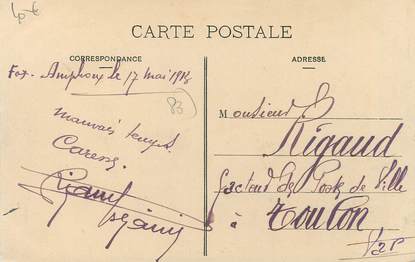 CARTE POSTALE
CORRESPONDANCE
ADRESSE
Fox-Amphoux le 17 mai 19
83
mauvais temps.
Caresse
Monsieur
Rigaud
facteur de Poste de Ville
à Toulon
Var